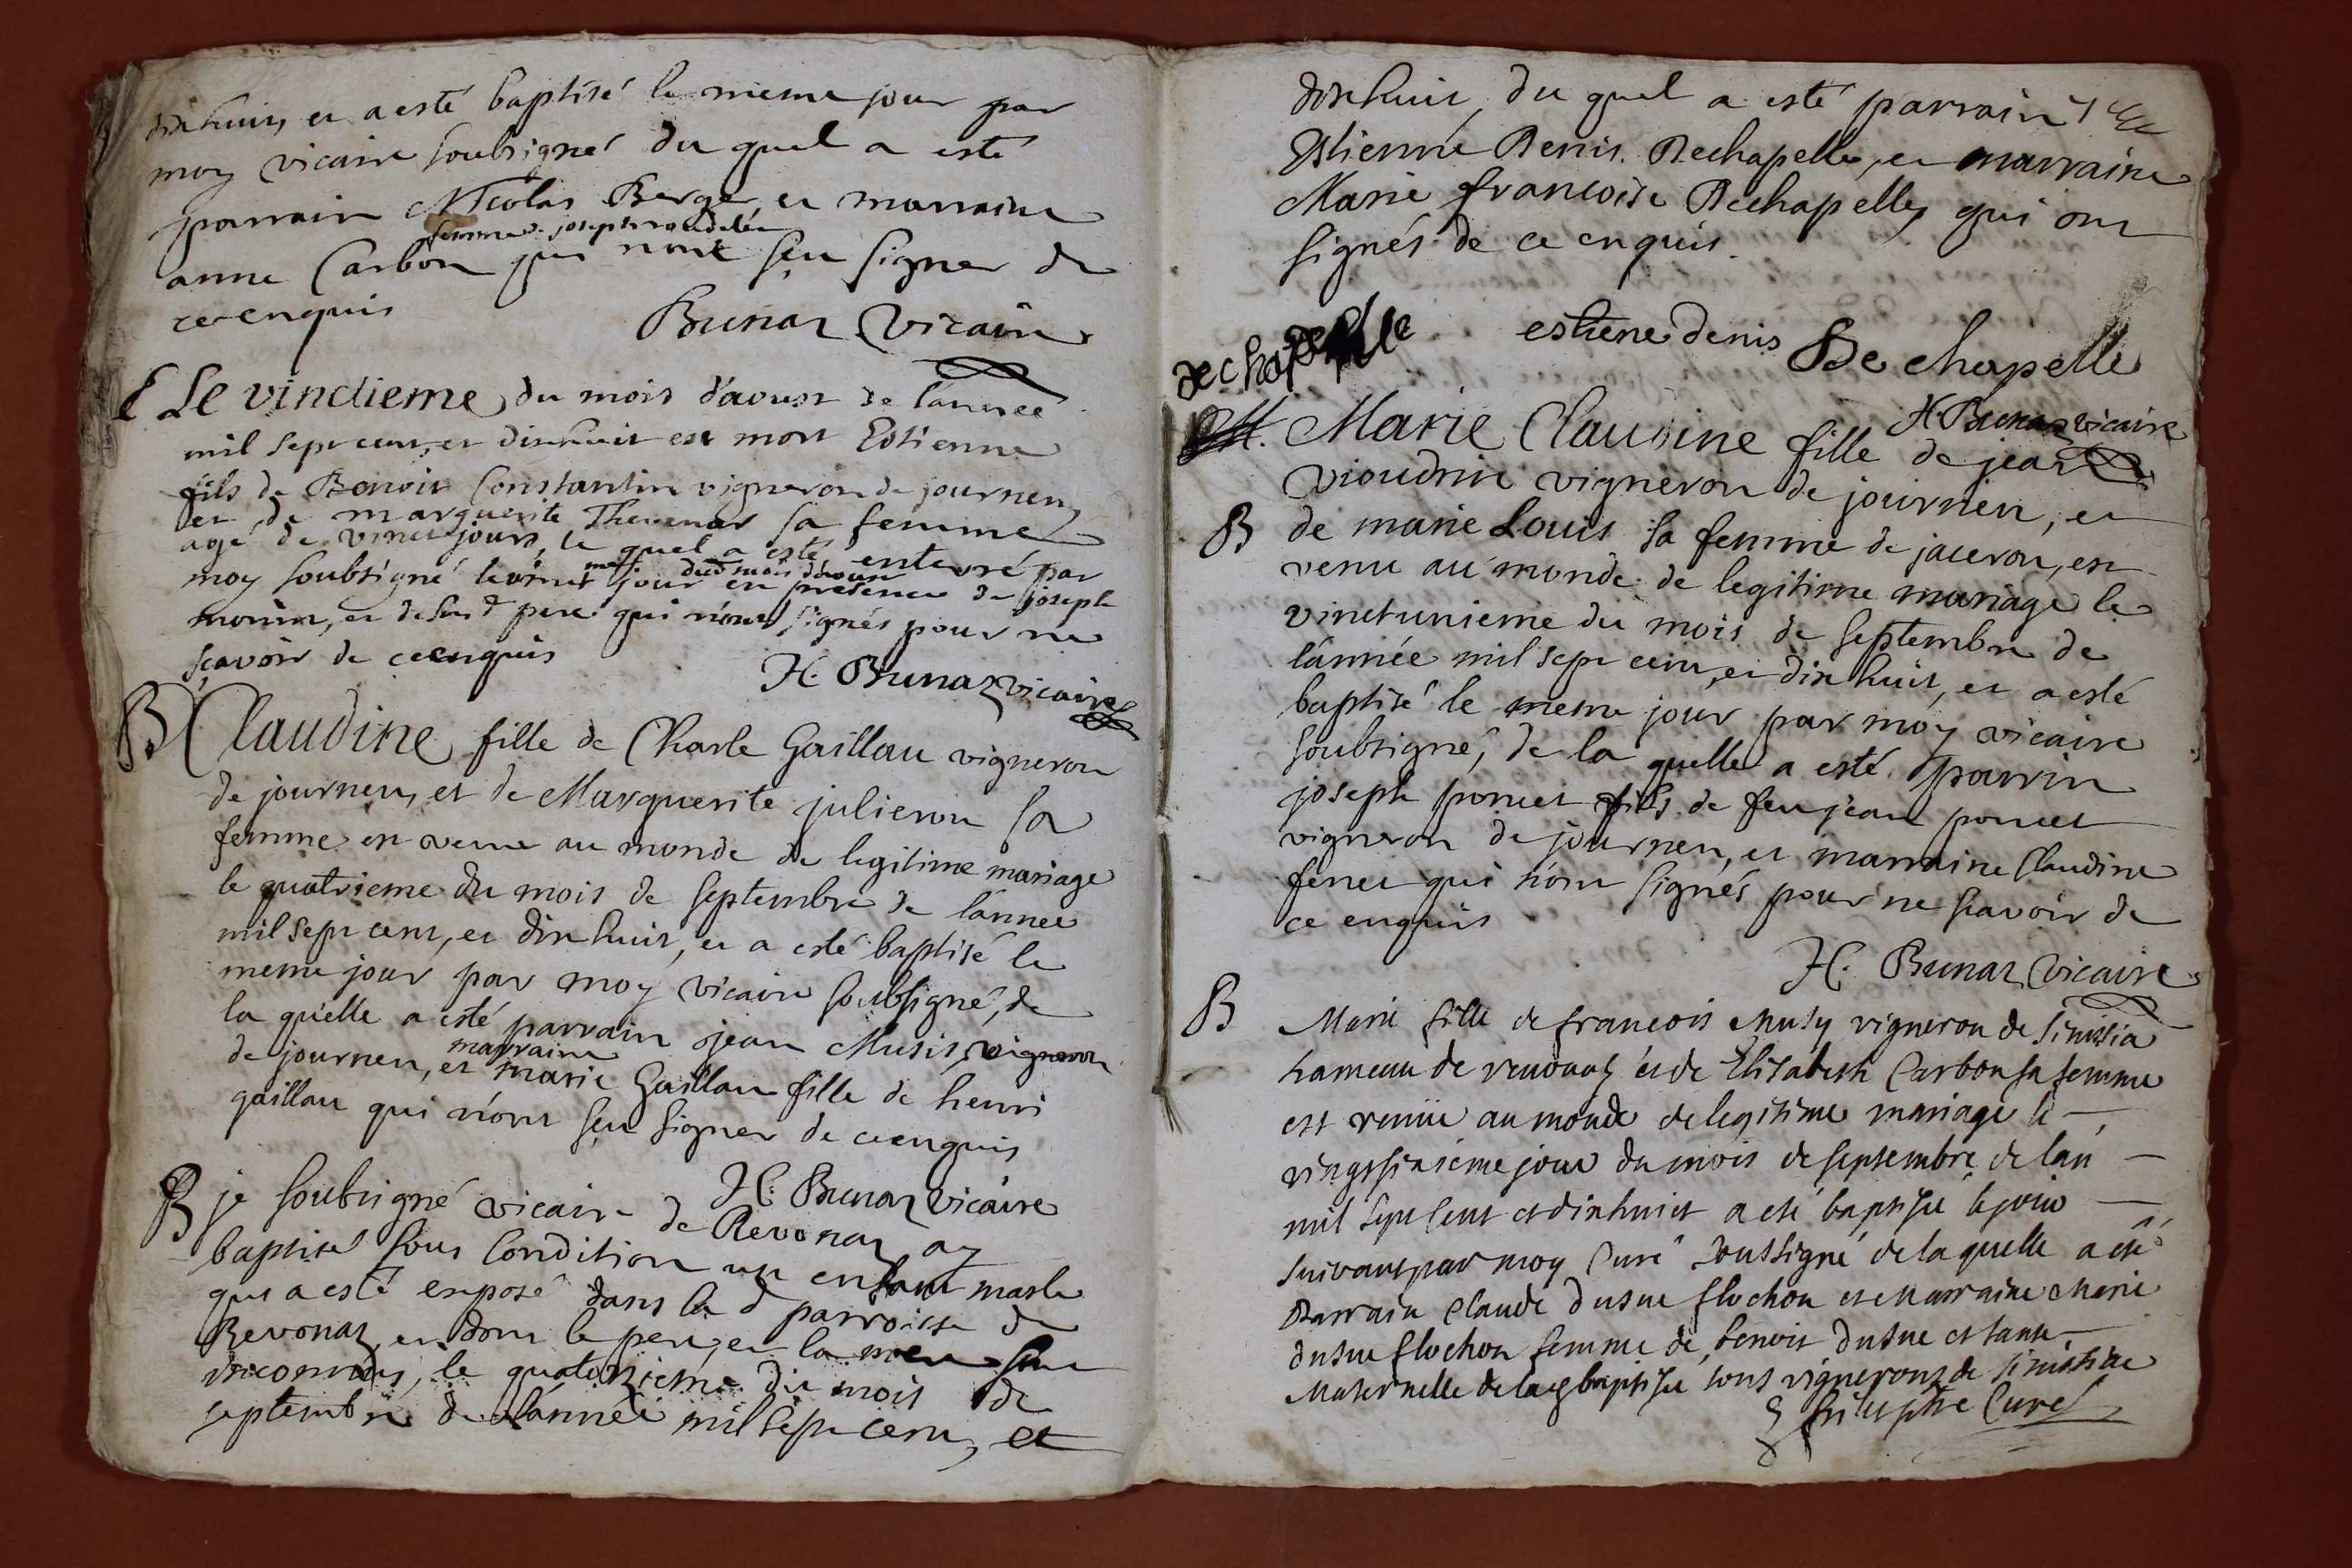 dixhuit, et a esté baptisé le mesme jour par
moy vicaire soubsigné du quel a esté
parrain Nicolas Berger et marraine
femme joseph
anne Carbon qui nont sçu signer de
ce enquis
Bunaz vicaire
E Le vinctieme du mois d'aoust de l'année
mil sept cent, et dixhuit est mort Estienne
fils de Benoit Constantin vigneron de journen,
et de marguerite Thevenar sa femme
agé de vinct jours, le quel a esté enterré par
mesme dud mois d'aoust
moy soubsigné le vinct jour en presence de joseph
morin, et de sud pere qui n'ont signés pour ne
sçavoir de ce enquis
H. Bunaz vicaire
B Claudine fille de Charle Gaillau vigneron
de journen, et de Marguerite julieron sa
femme est venue au monde de legitime mariage
le quatrieme du mois de septembre de l'année
mil sept cent, et dix huit, et a esté baptisé le
meme jour par moy vicaire soubsigné, de
la quelle a esté parrain jean Musis, vigneron
marraine
de journen, et marie Gaillau fille de henri
gaillau qui n'ont sçu signer de ce enquis
H. Bunaz vicaire
B je soubsigné vicaire de Revonaz ay
baptisé sous Condition un enfant masle
qui a esté exposé dans la d parroisse de
Revonaz, et dont le pere, et la mere sont
inconnus, le quatorzieme du mois de
septembre de l'année mil sept cent, et
dixhuit, du quel a esté parrain
Estienne Denis Dechapelle, et marraine
Marie francoise Dechapelle, qui ont
signés de ce enquis.
dechapelle
estiene denis De chapelle
H. Bunaz vicaire
M. Marie Claudine fille de jean
vioudrin vigneron de journen, et
B de marie Louis sa femme de jaceron, est
venu au monde de legitime mariage le
vinctunieme du mois de septembre de
l'année mil sept cent, et dix huit, et a esté
baptisé le meme jour par moy vicaire
soubsigné, de la quelle a esté parrin
joseph poncet fils de feu jean poncet
vigneron de journen, et marraine Claudine
feret qui n'ont signés pour ne scavoir de
ce enquis
H. Bunaz vicaire
B Marie fille de francois Musy vigneron de Sinissia
hameau de revonaz et de Elisabeth Carbon sa femme
est venüe au monde de legitime mariage le
vingtsixieme jour du mois de septembre de l'an
mil sept cent et dixhuict a esté baptisée le jour
suivant par moy Curé soussigné de laquelle a esté
Parrain Claude dusue flochon et Marraine Marie
dusue flochon femme de benoit dusue et tante
Maternelle de la baptisée tous vignerons de sinissia
ptre Curé